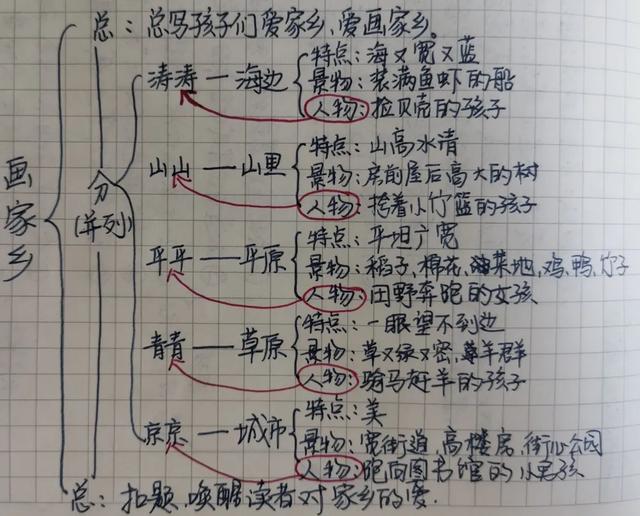 总：总写孩子们爱家乡、爱画家乡。
画家乡
分
(并列)
涛涛——海边
特点：海又宽又蓝
景物：装满鱼虾的船
人物：捡贝壳的孩子
山山——山里
特点：山高水清
景物：房前屋后高大的树
人物：挎着小竹篮的孩子
平平——平原
特点：平坦广宽
景物：稻子，棉花，油菜地，鸡，鸭，竹子
人物：田野奔跑的女孩
青青——草原
特点：一眼望不到边
景物：草又绿又密，羊群
人物：骑马赶羊的孩子
京京——城市
特点：美
景物：宽街道，高楼房，街心公园
人物：跑向图书馆的小男孩
总：扣题，唤醒读者对家乡的爱．